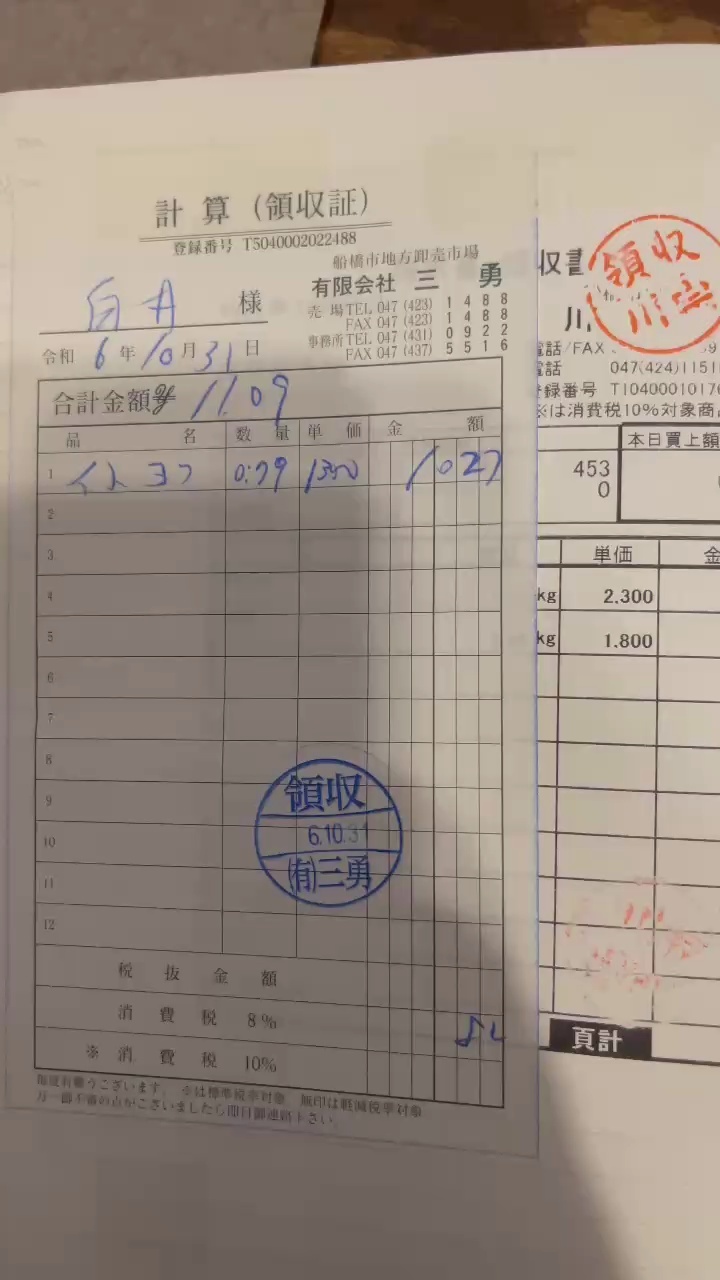 計算(領収証)
登録番号 T5040002022488
船橋市地方卸売市場
有限会社 三 勇
売場 TEL 047 (423) 1488
FAX 047 (423) 1488
事務所 TEL 047 (431) 0922
FAX 047 (437) 5516
白井 様
令和 6年10月31日
合計金額 ¥ 1109
品名 数量 単価 金額
1 イトヨリ 0.79 1300 1027
2
3
4
5
6
7
8
9
10
11
12
領収
6.10.31
(有)三勇
税抜金額
消費税 8% 82
※消費税 10%
毎度有難うございます。 ※は標準税率対象 無印は軽減税率対象
万一御不審の点がございましたら即日御連絡下さい。
収書
領収
電話/FAX
電話 047(424)1151
登録番号 T10400010176
※は消費税10%対象商品
本日買上額
453
0
単価 金
kg 2,300
kg 1,800
頁計